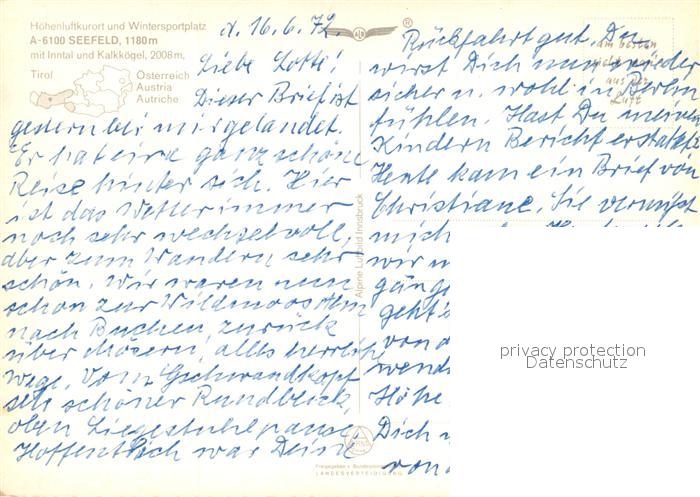 Höhenluftkurort und Wintersportplatz
A-6100 SEEFELD, 1180m
mit Inntal und Kalkkögel, 2008m,
Tirol
Österreich
Austria
Autriche
d. 16.6.72.
Liebe Lotti!
Dieser Brief ist
gestern bei mir gelandet.
Er hat eine ganz schöne
Reise hinter sich. Hier
ist das Wetter immer
noch sehr wechselvoll,
aber zum Wandern sehr
schön. Wir waren nun
schon zur Wildmoosalm
nach Buchen, zurück
über Mösern, alles herrliche
Wege. Vom Gschwandtkopf
sehr schöner Rundblick,
oben Liegestuhlpause.
Hoffentlich war Deine
Alpine Luftbild Innsbruck
ALPI
®
Rückfahrt gut. Du
wirst Dich nun wieder
sicher u. wohl in Berlin
fühlen. Hast Du meinen
Kindern Bericht erstattet?
Heute kam ein Brief von
Christiane. Sie vermisst
mich
wir
gäng
geht
von d
wend
Höhe
Dich
von
am besten
aus der
Luft
Freigegeben v. Bundesmin
LANDESVERTEIDIGUNG
privacy protection
Datenschutz